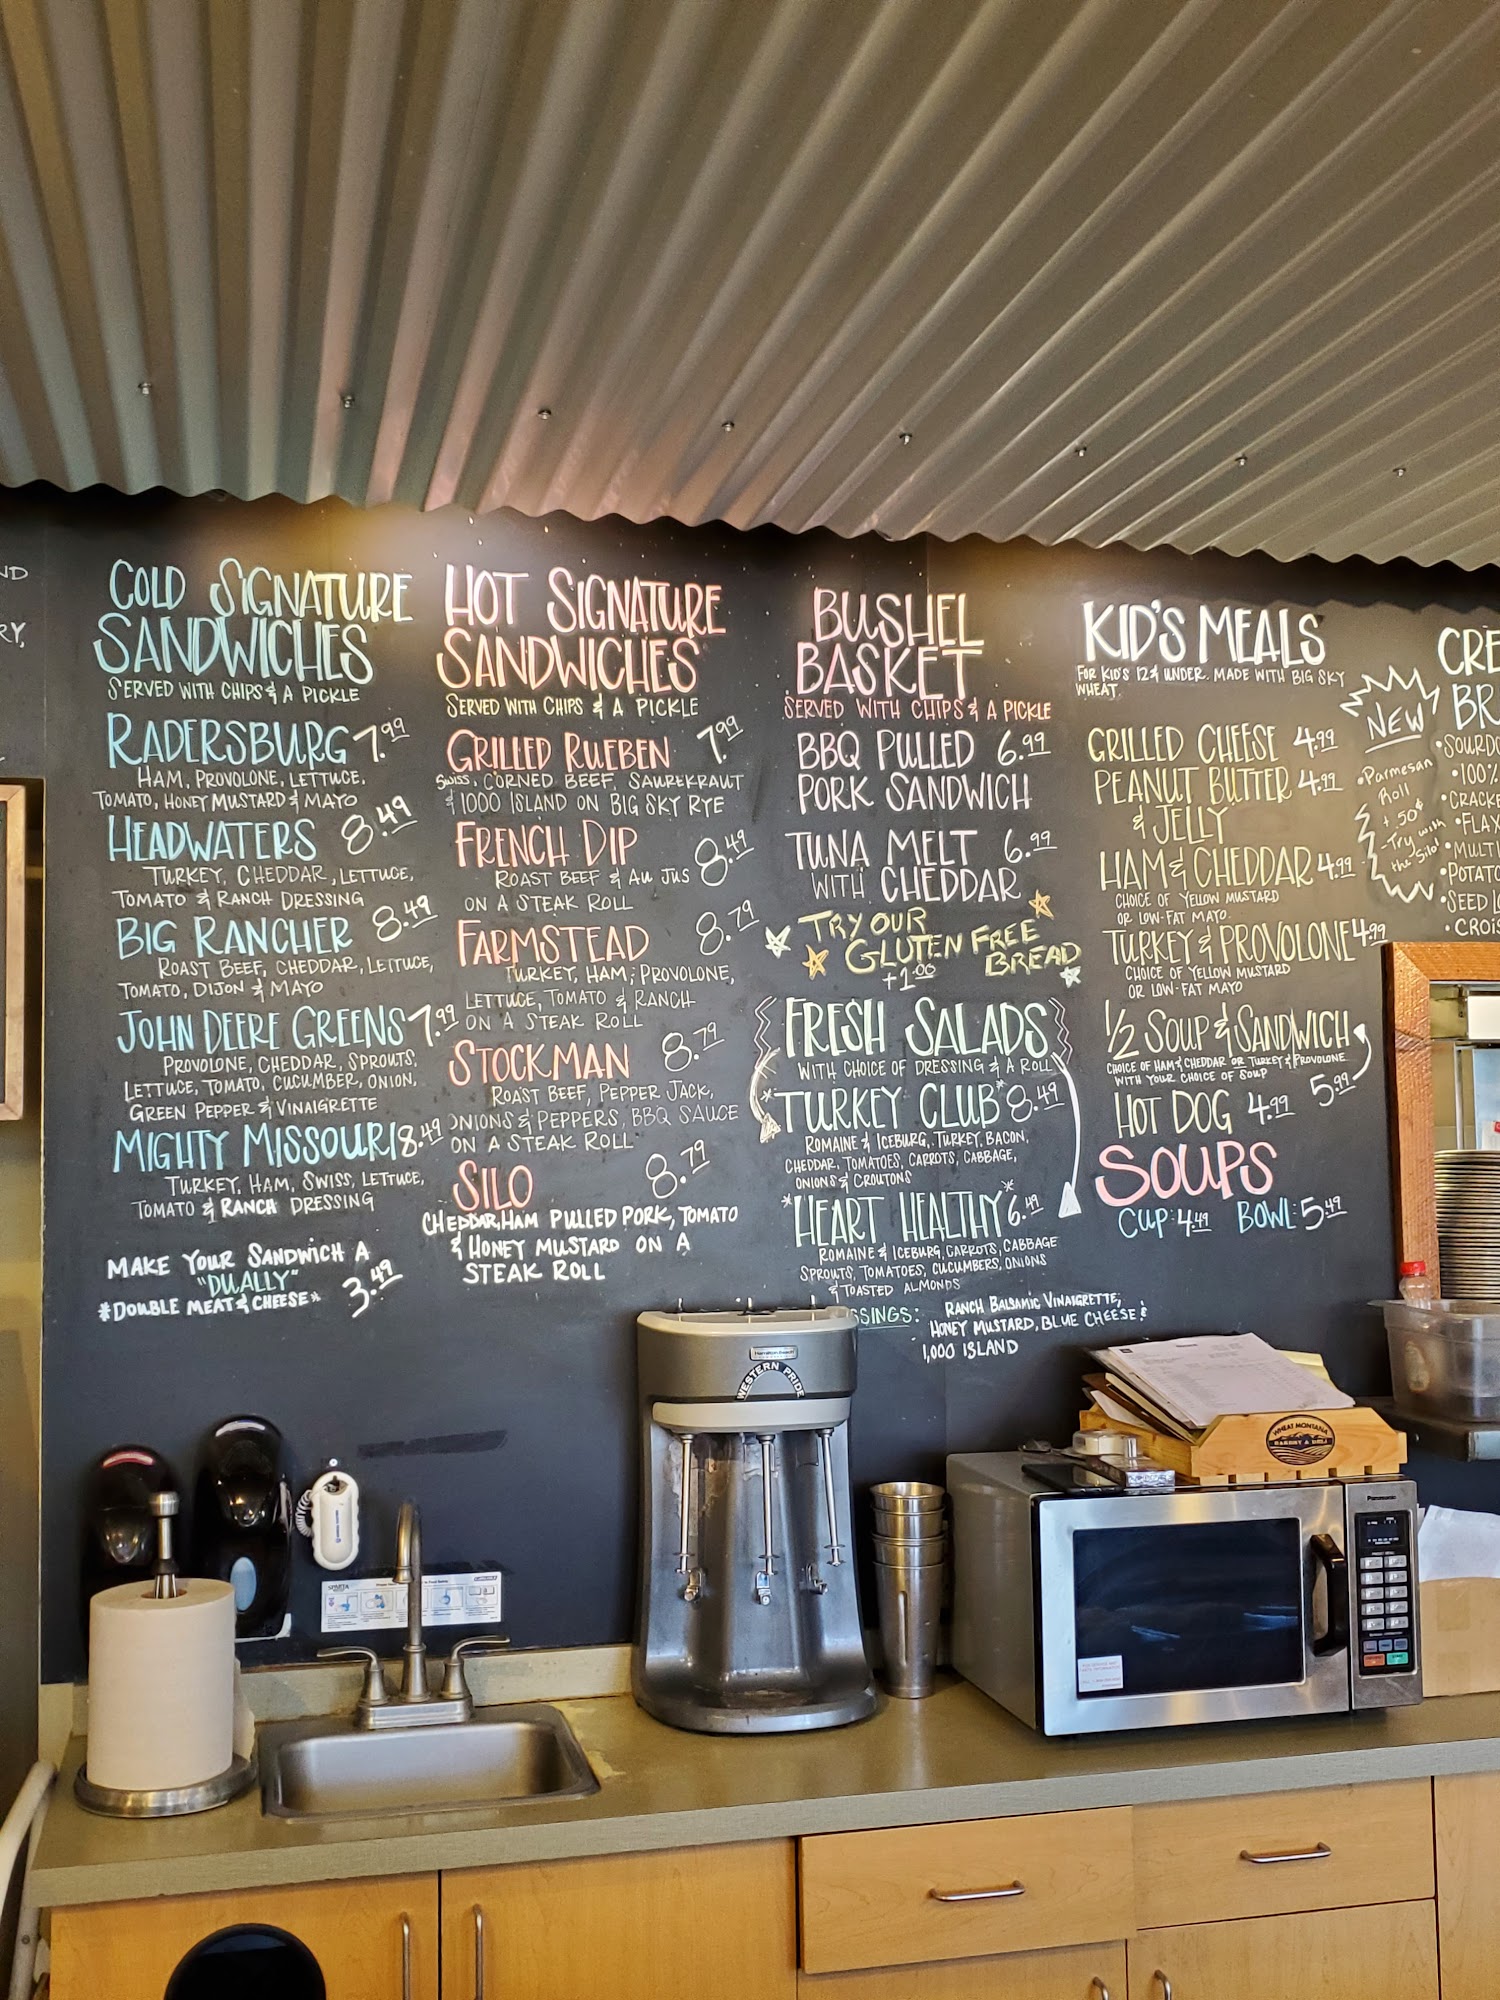 ND
RY,
COLD SIGNATURE
SANDWICHES
SERVED WITH CHIPS & A PICKLE
RADERSBURG 7.99
HAM, PROVOLONE, LETTUCE,
TOMATO, HONEY MUSTARD & MAYO
HEADWATERS 8.49
TURKEY, CHEDDAR, LETTUCE,
TOMATO & RANCH DRESSING
BIG RANCHER 8.49
ROAST BEEF, CHEDDAR, LETTUCE,
TOMATO, DIJON & MAYO
JOHN DEERE GREENS 7.99
PROVOLONE, CHEDDAR, SPROUTS,
LETTUCE, TOMATO, CUCUMBER, ONION,
GREEN PEPPER & VINAIGRETTE
MIGHTY MISSOURI 8.49
TURKEY, HAM, SWISS, LETTUCE,
TOMATO & RANCH DRESSING
MAKE YOUR SANDWICH A
"DUALLY"
*DOUBLE MEAT & CHEESE* 3.49
HOT SIGNATURE
SANDWICHES
SERVED WITH CHIPS & A PICKLE
GRILLED RUEBEN 7.99
SWISS, CORNED BEEF, SAUREKRAUT
& 1000 ISLAND ON BIG SKY RYE
FRENCH DIP 8.49
ROAST BEEF & AU JUS
ON A STEAK ROLL
FARMSTEAD 8.79
TURKEY, HAM, PROVOLONE,
LETTUCE, TOMATO & RANCH
ON A STEAK ROLL
STOCKMAN 8.79
ROAST BEEF, PEPPER JACK,
ONIONS & PEPPERS, BBQ SAUCE
ON A STEAK ROLL
SILO 8.79
CHEDDAR, HAM PULLED PORK, TOMATO
& HONEY MUSTARD ON A
STEAK ROLL
BUSHEL
BASKET
SERVED WITH CHIPS & A PICKLE
BBQ PULLED 6.99
PORK SANDWICH
TUNA MELT 6.99
WITH CHEDDAR
TRY OUR
GLUTEN FREE
BREAD
+1.00
FRESH SALADS
WITH CHOICE OF DRESSING & A ROLL
*TURKEY CLUB* 8.49
ROMAINE & ICEBURG, TURKEY, BACON,
CHEDDAR, TOMATOES, CARROTS, CABBAGE,
ONIONS & CROUTONS
*HEART HEALTHY* 6.49
ROMAINE & ICEBURG, CARROTS, CABBAGE
SPROUTS, TOMATOES, CUCUMBERS, ONIONS
& TOASTED ALMONDS
SSINGS: RANCH BALSAMIC VINAIGRETTE,
HONEY MUSTARD, BLUE CHEESE &
1,000 ISLAND
KID'S MEALS
FOR KID'S 12 & UNDER. MADE WITH BIG SKY
WHEAT.
GRILLED CHEESE 4.99
PEANUT BUTTER 4.99
& JELLY
HAM & CHEDDAR 4.99
CHOICE OF YELLOW MUSTARD
OR LOW-FAT MAYO.
TURKEY & PROVOLONE 4.99
CHOICE OF YELLOW MUSTARD
OR LOW-FAT MAYO
1/2 SOUP & SANDWICH
CHOICE OF HAM & CHEDDAR OR TURKEY & PROVOLONE
WITH YOUR CHOICE OF SOUP 5.99
HOT DOG 4.99
SOUPS
CUP: 4.49 BOWL: 5.49
NEW
•Parmesan
Roll
+.50¢
-Try with
the Silo!
CRE
BR
•SOURDO
•100%
•CRACKE
•FLAX
•MULTI
•POTATO
•SEED L
•CROIS
Hamilton Beach
WESTERN PRIDE
WHEAT MONTANA
BAKERY & DELI
Panasonic
SPARTA